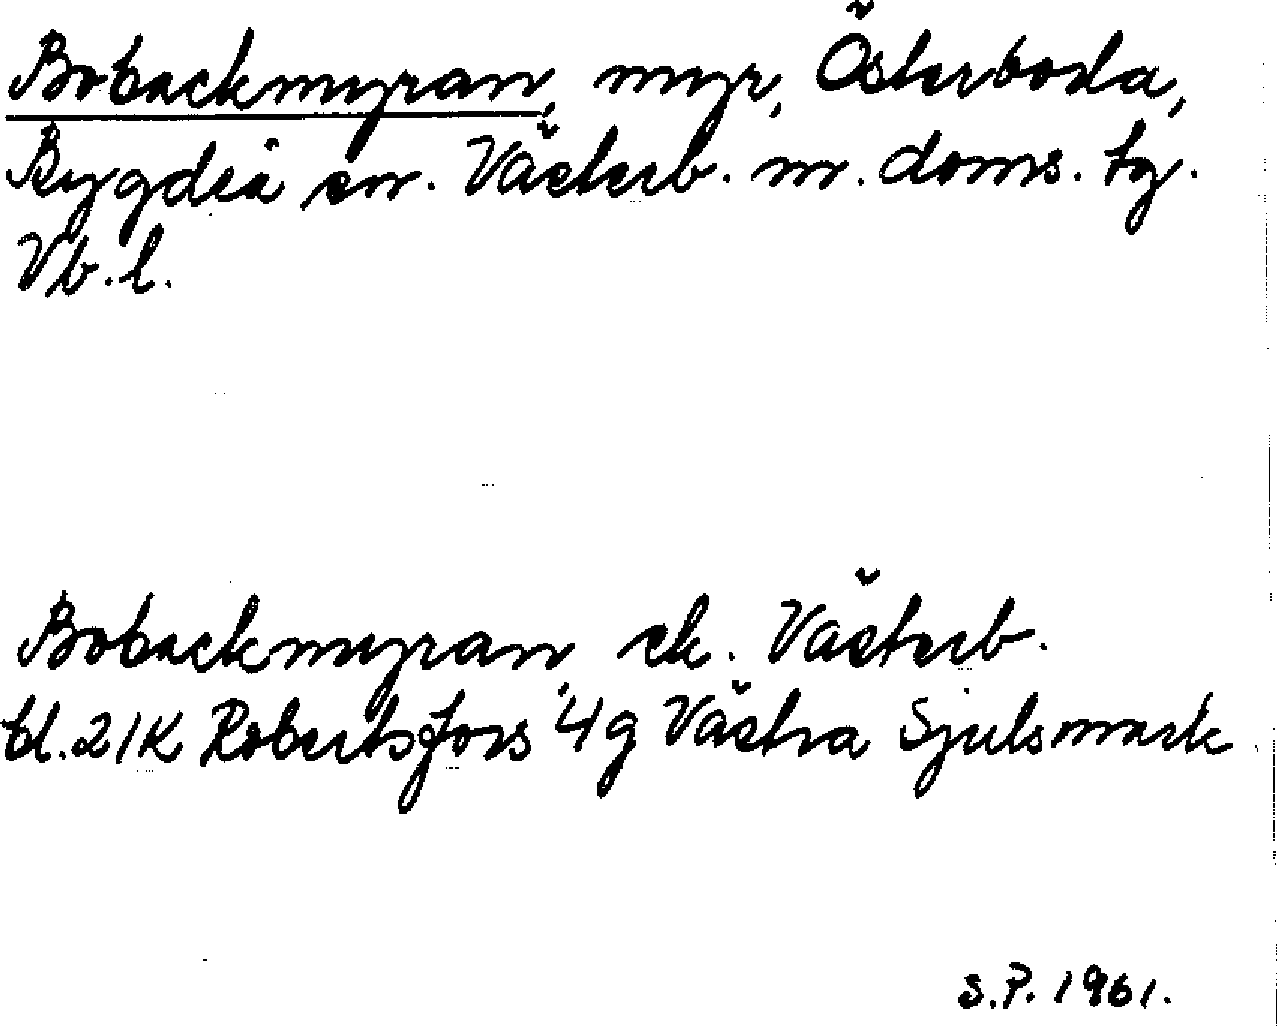 Bobackmyran, myr, Österboda,
Bygdeå sn. Västerb. m. doms. tg.
Vb. l.
Bobackmyran, ek. Västerb.
bl. 21K Robertsfors 4g Västra Sjulsmark
S.P. 1961.